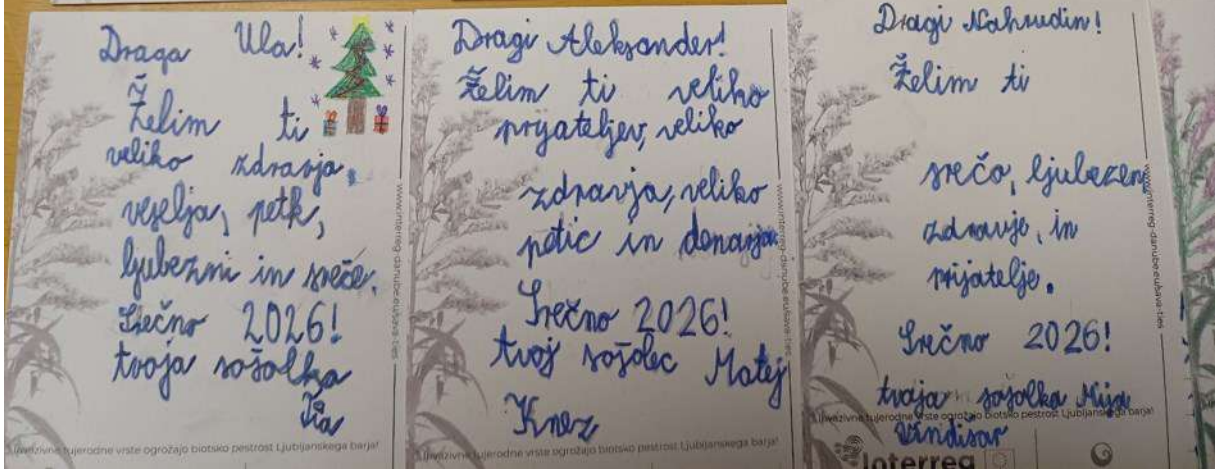 Draga Ula!
Želim ti
veliko zdravja,
veselja, petk,
ljubezni in sreče.
Srečno 2026!
tvoja sošolka
Pia
www.interreg-danube.eu/sava-ties
Invazivne tujerodne vrste ogrožajo biotsko pestrost Ljubljanskega barja!
Dragi Aleksander!
Želim ti veliko
prijateljev, veliko
zdravja, veliko
petic in denarja
Srečno 2026!
tvoj sošolec Matej
Knez
www.interreg-danube.eu/sava-ties
Invazivne tujerodne vrste ogrožajo biotsko pestrost Ljubljanskega barja!
Dragi Nahrudin!
Želim ti
srečo, ljubezen
zdravje, in
prijatelje.
Srečno 2026!
tvoja sošolka Mija
Vindišar
www.interreg-danube.eu/sava-ties
Invazivne tujerodne vrste ogrožajo biotsko pestrost Ljubljanskega barja!
Interreg